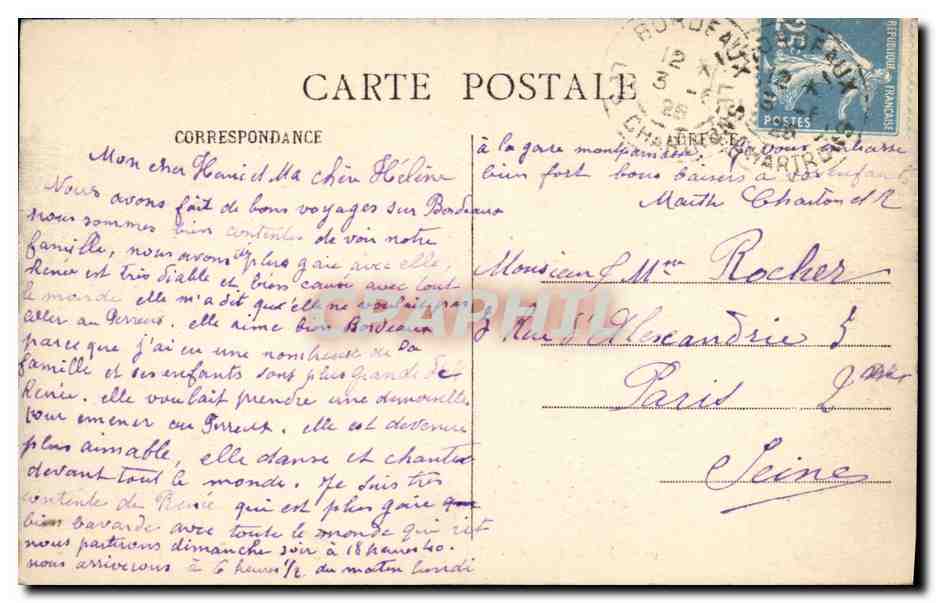 CARTE POSTALE
CORRESPONDANCE
ADRESSE
BORDEAUX
12
3
28
BORDEAUX
RÉPUBLIQUE FRANÇAISE
25c
POSTES
Mon cher Henri et Ma chère Hélène
Nous avons fait de bons voyages sur Bordeaux
nous sommes bien contentes de voir notre
famille, nous avons plus gaie avec elle,
Renée est très diable et bien cause avec tout
le monde elle m'a dit que elle ne voulait pas
aller au Perreux. elle aime bien Bordeaux
parce que j'ai eu une nombreuse de Da
famille et ses enfants sont plus grande de
Renée. elle voulait prendre une demoiselle
pour emener au Perreux. elle est devenue
plus aimable, elle danse et chante
devant tout le monde. Je suis très
contente de Renée qui est plus gaie
bien bavarde avec toute le monde qui rit
nous partirons dimanche soir à 18 heures 40.
nous arriverons à 6 heures 1/2 du matin lundi
à la gare montparnasse. Je vous embrasse
bien fort bons baisers à vos enfants
Marthe Charton et R
Monsieur & Mme Rocher
3 Rue d'Alexandrie 3
Paris 2me
Seine
CPAPHIL